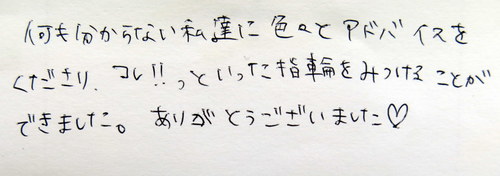 何も分からない私達に色々とアドバイスを
くださり、コレ!!っといった指輪をみつけることが
できました。ありがとうございました♡